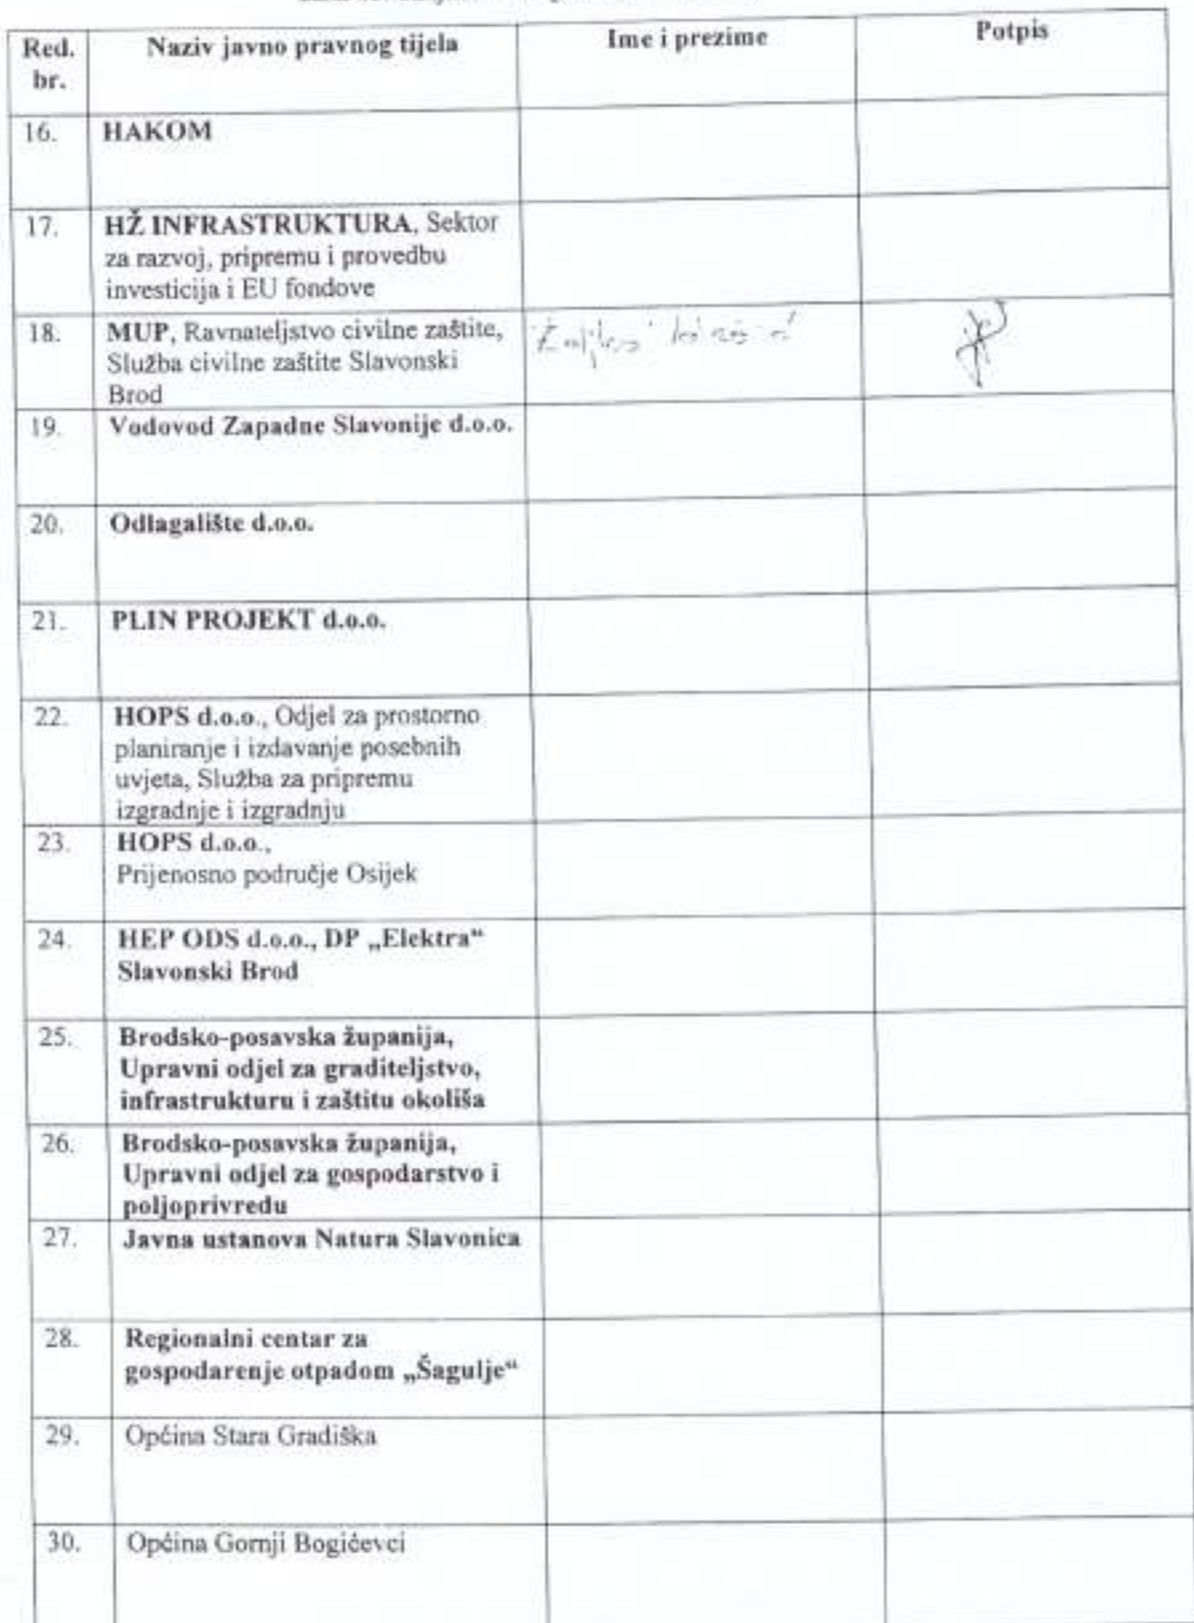 Red. br.
Naziv javno pravnog tijela
Ime i prezime
Potpis
16.
HAKOM
17.
HŽ INFRASTRUKTURA, Sektor
za razvoj, pripremu i provedbu
investicija i EU fondove
18.
MUP, Ravnateljstvo civilne zaštite,
Služba civilne zaštite Slavonski
Brod
19.
Vodovod Zapadne Slavonije d.o.o.
20.
Odlagalište d.o.o.
21.
PLIN PROJEKT d.o.o.
22.
HOPS d.o.o., Odjel za prostorno
planiranje i izdavanje posebnih
uvjeta, Služba za pripremu
izgradnje i izgradnju
23.
HOPS d.o.o.,
Prijenosno područje Osijek
24.
HEP ODS d.o.o., DP „Elektra“
Slavonski Brod
25.
Brodsko-posavska županija,
Upravni odjel za graditeljstvo,
infrastrukturu i zaštitu okoliša
26.
Brodsko-posavska županija,
Upravni odjel za gospodarstvo i
poljoprivredu
27.
Javna ustanova Natura Slavonica
28.
Regionalni centar za
gospodarenje otpadom „Šagulje“
29.
Općina Stara Gradiška
30.
Općina Gornji Bogićevci